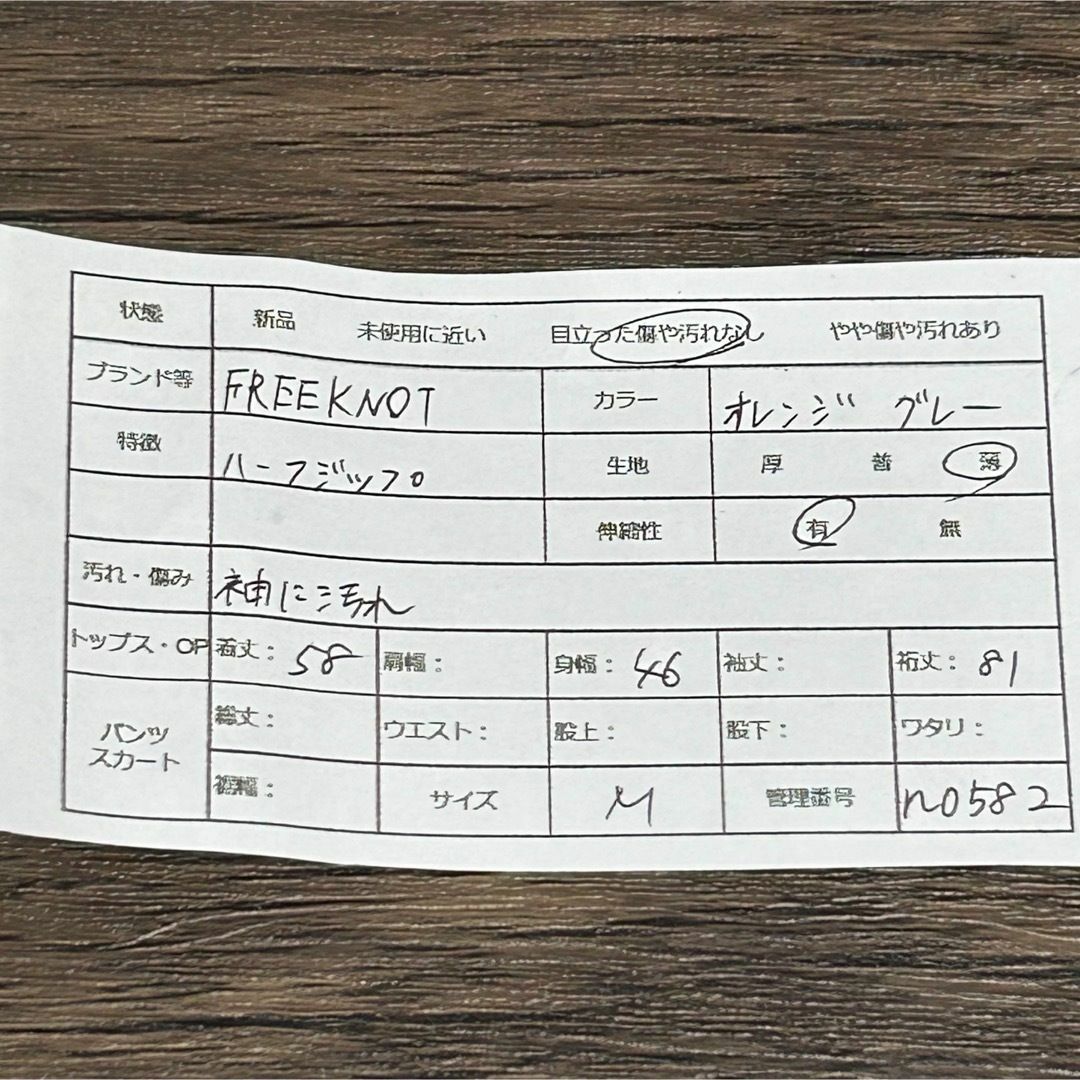 状態 新品 未使用に近い 目立った傷や汚れなし やや傷や汚れあり
ブランド等 FREEKNOT カラー オレンジ グレー
特徴 ハーフジップ 生地 厚 普 薄
伸縮性 有 無
汚れ・傷み 袖に汚れ
トップス・OP 着丈: 58 肩幅: 身幅: 46 袖丈: 裄丈: 81
パンツ スカート 総丈: ウエスト: 股上: 股下: ワタリ:
裾幅: サイズ M 管理番号 n0582